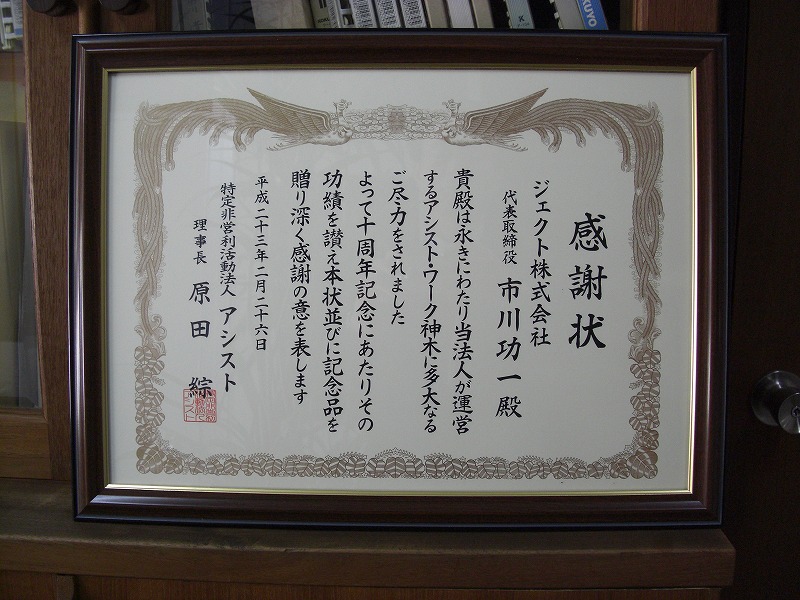 感謝状
ジェクト株式会社
代表取締役 市川功一殿
貴殿は永きにわたり当法人が運営
するアシスト・ワーク神木に多大なる
ご尽力をされました
よって十周年記念にあたりその
功績を讃え本状並びに記念品を
贈り深く感謝の意を表します
平成二十三年二月二十六日
特定非営利活動法人 アシスト
理事長 原田 綜
KOKUYO